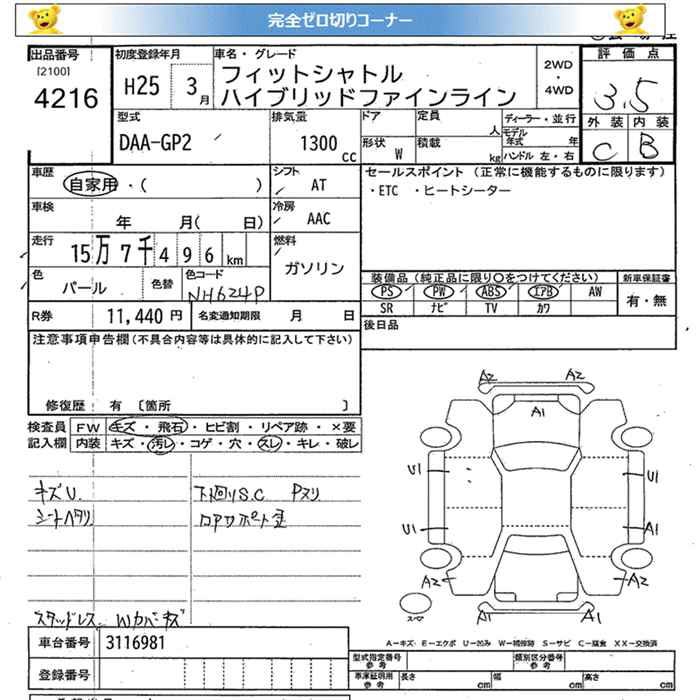 完全ゼロ切りコーナー
出品番号 初度登録年月 車名・グレード 2WD・4WD 評価点
[2100]
4216 H25 3月 フィットシャトル
ハイブリッドファインライン 3.5
型式 排気量 ドア 定員 人 ディーラー・並行 外装 内装
DAA-GP2 1300cc 形状 W 積載 kg モデル年式 年 ハンドル 左・右 C B
車歴 自家用・( ) シフト AT セールスポイント (正常に機能するものに限ります)
・ETC ・ヒートシーター
車検 年 月( 日) 冷房 AAC
走行 15万7千496km 燃料 ガソリン
色 パール 色替 色コード NH624P
装備品 (純正品に限り○をつけてください) 新車保証書
PS PW ABS エアB AW 有・無
SR ナビ TV カワ
R券 11,440円 名変通知期限 月 日
後日品
注意事項申告欄 (不具合内容等は具体的に記入して下さい)
修復歴 有 〔箇所 〕
検査員 FW キズ・飛石・ヒビ割・リペア跡・×要
記入欄 内装 キズ・汚レ・コゲ・穴・スレ・キレ・破レ
キズU. 下廻りS.C Pヌリ
シートヘタリ コアサポート歪
スタッドレス Wカバーキズ
A2 A2
A1
U1 U1
U1 A1
A2 A2
スペア A1 A1
A－キズ E－エクボ U－凹み W－補修跡 S－サビ C－腐食 XX－交換済
車台番号 3116981
型式指定番号 参考 類別区分番号 参考
登録番号
車庫証明用 参考 長さ cm 幅 cm 高さ cm